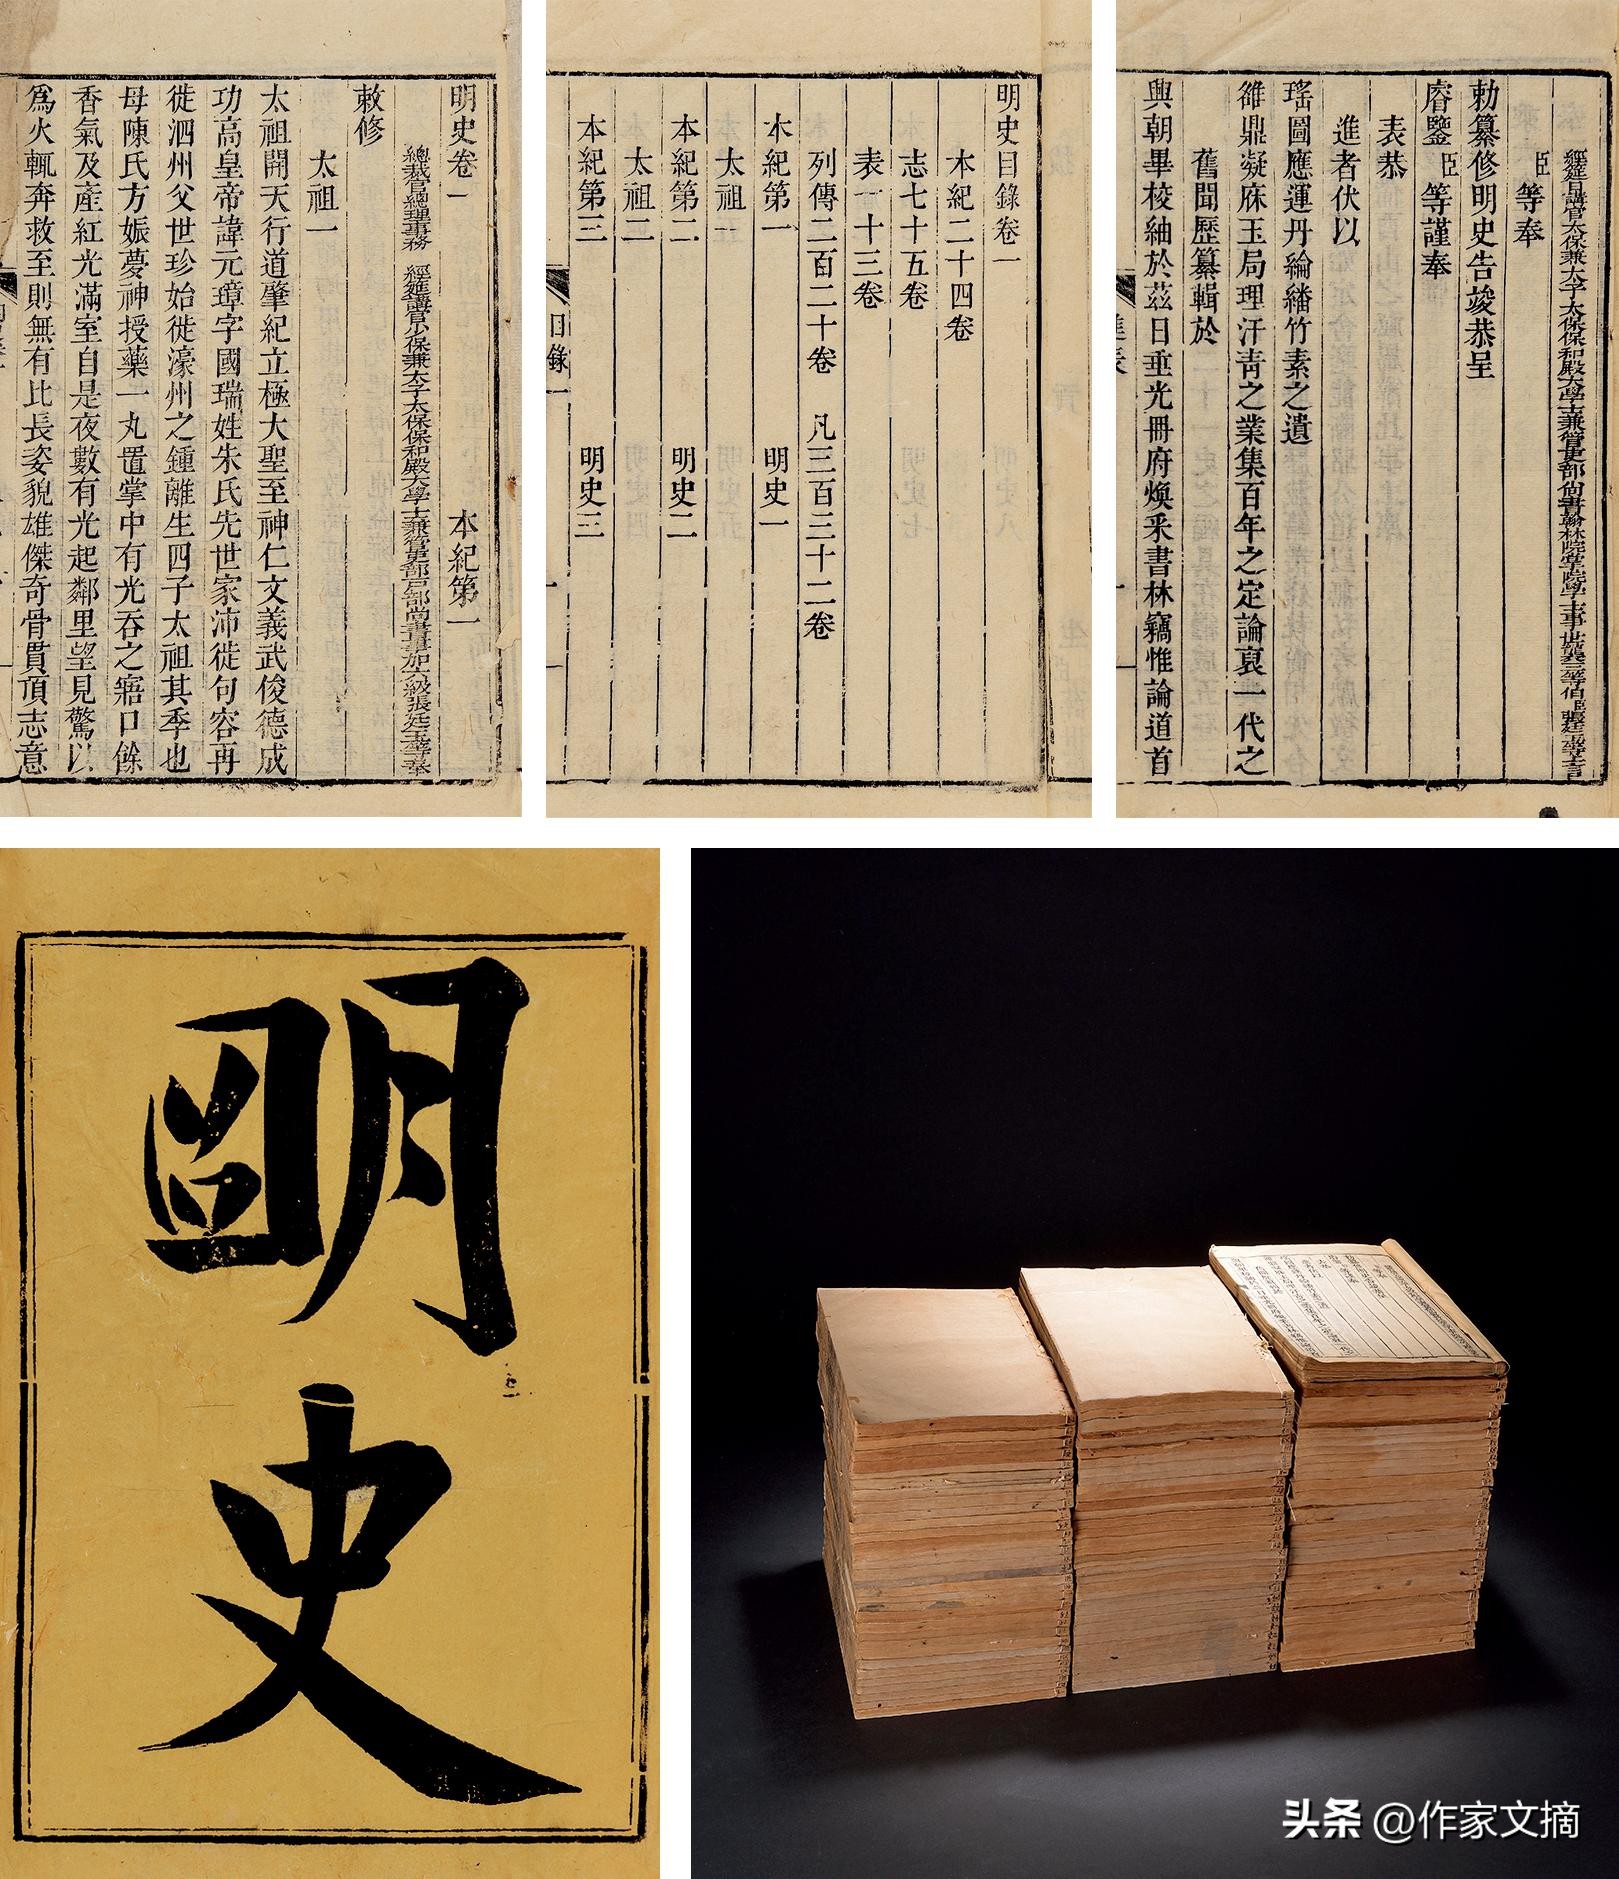 明史卷一 本紀第一
總裁官總理事務 經筵講官少保兼太子太保保和殿大學士兼管吏部戶部尚書事加六級張廷玉等奉
敕修
太祖一
太祖開天行道肇紀立極大聖至神仁文義武俊德成
功高皇帝諱元璋字國瑞姓朱氏先世家沛徙句容再
徙泗州父世珍始徙濠州之鍾離生四子太祖其季也
母陳氏方娠夢神授藥一丸置掌中有光吞之寤口餘
香氣及產紅光滿室自是夜數有光起鄰里望見驚以
爲火輒奔救至則無有比長姿貌雄傑奇骨貫頂志意
明史目錄卷一
本紀二十四卷
志七十五卷
表一十三卷
列傳二百二十卷 凡三百三十二卷
本紀第一 明史一
太祖一
本紀第二 明史二
太祖二
本紀第三 明史三
目錄一
經筵日講官太保兼太子太保保和殿大學士兼管吏部尚書翰林院掌院學士事世襲三等伯臣張廷玉等上言
臣等奉
勅纂修明史告竣恭呈
睿鑒臣等謹奉
表恭
進者伏以
瑤圖應運丹綸繙竹素之遺
雒鼎凝庥玉局理汗靑之業集百年之定論裒一代之
舊聞歷纂輯於
興朝畢校紬於茲日垂光冊府煥采書林竊惟論道首
進表
明史
头条 @作家文摘